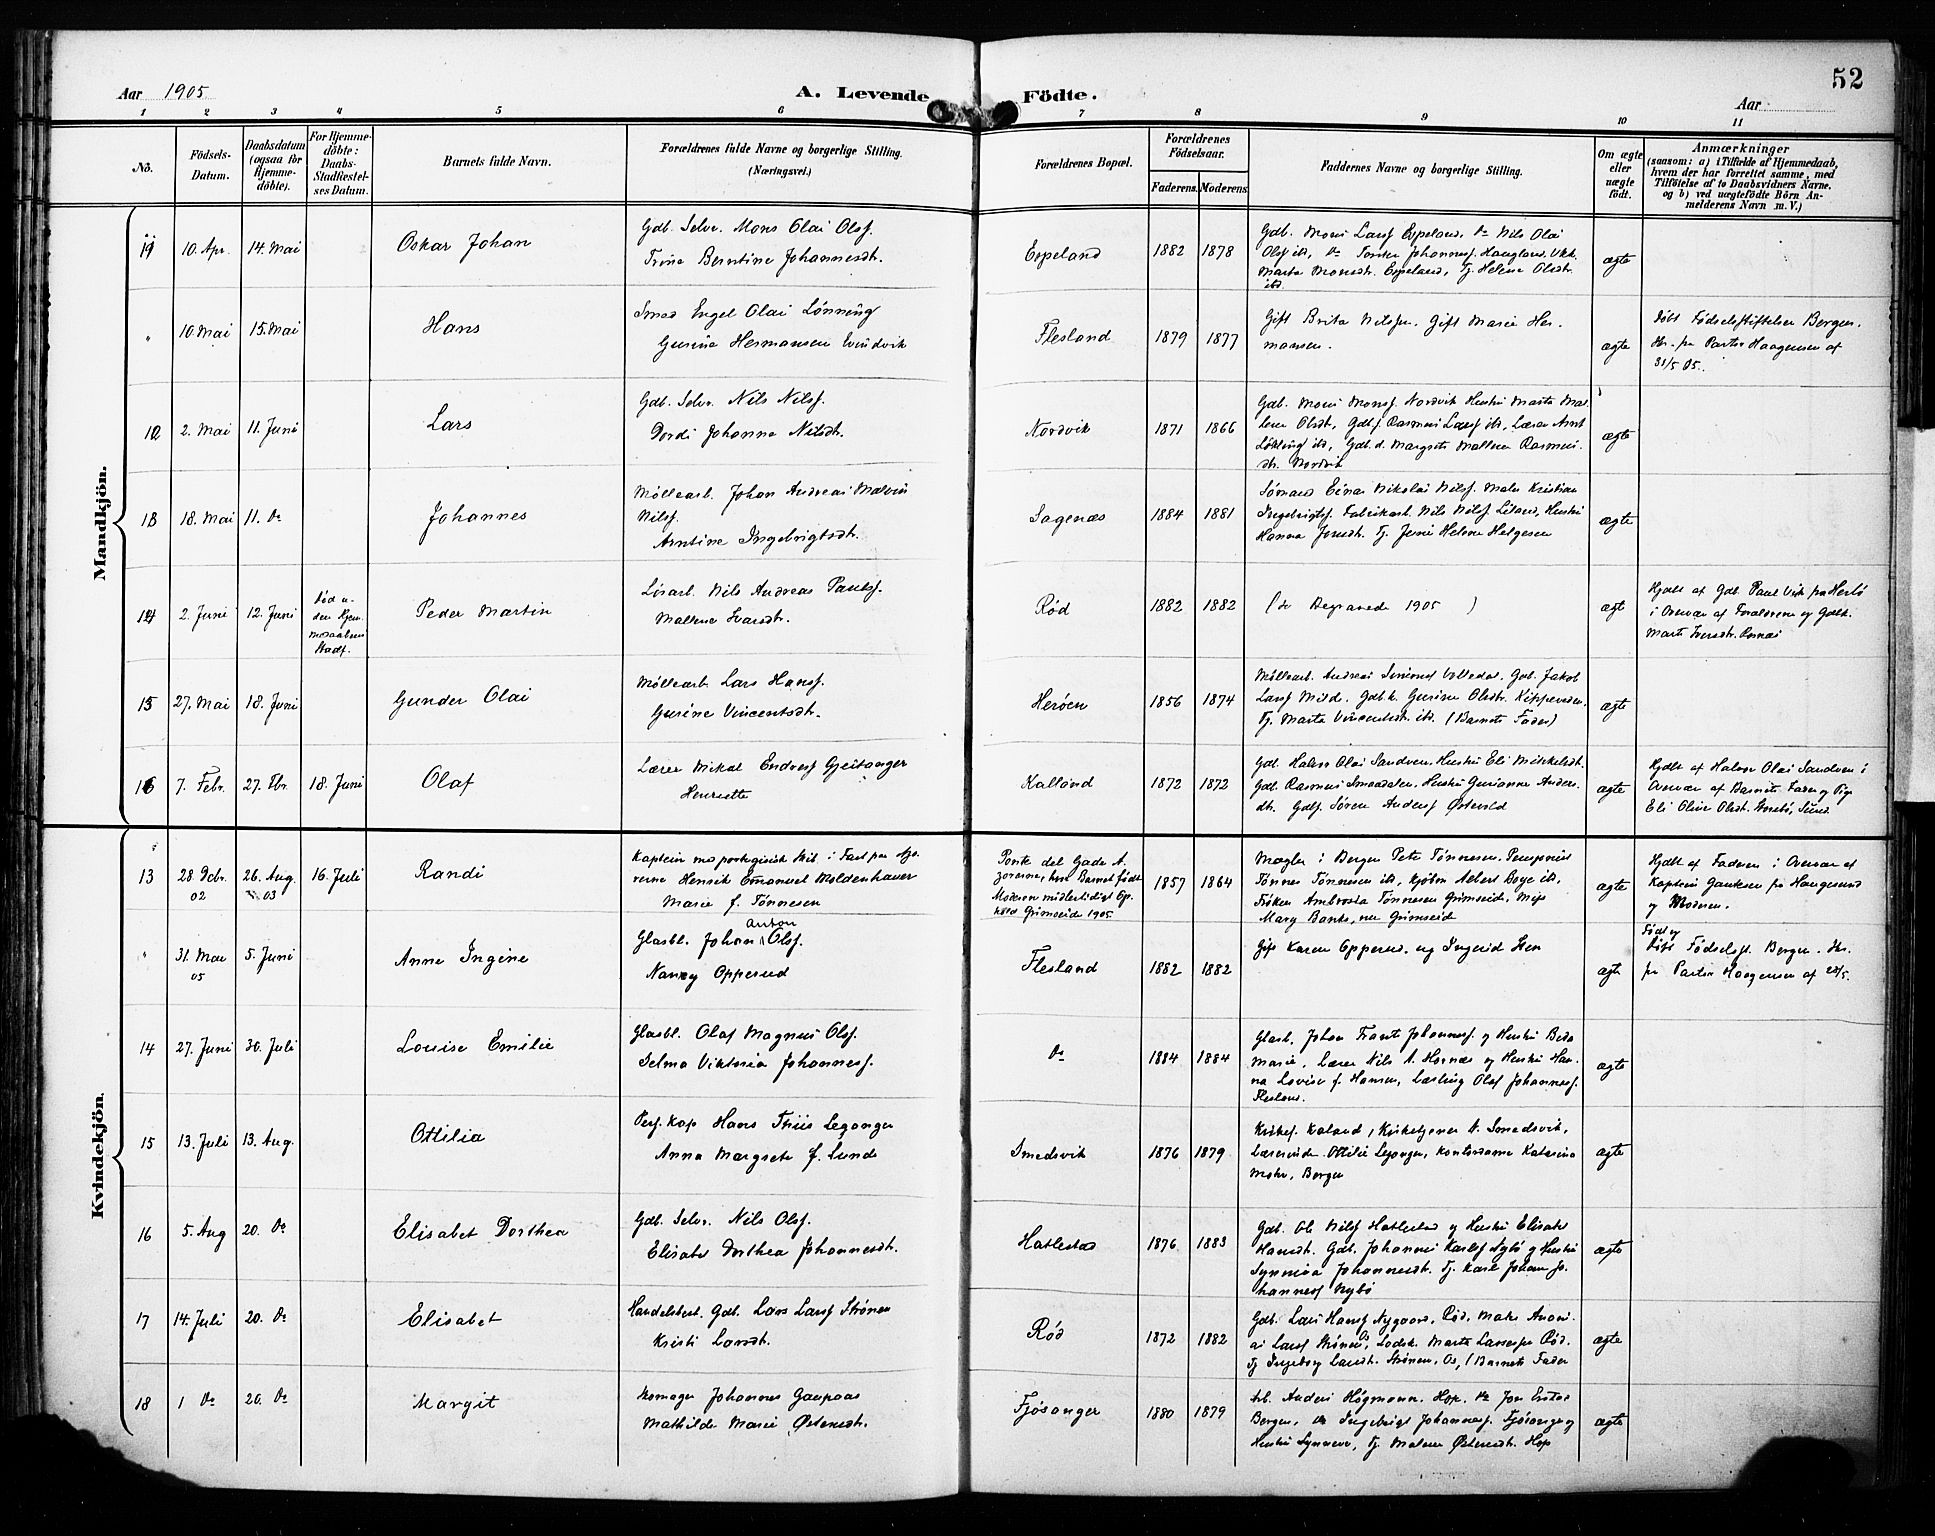 52
Aar 1905
A. Levende
Födte.
Aar
1 2 3 4 5 6 7 8 9 10 11
No.
Födsels-Datum.
Daabsdatum (ogsaa for Hjemme-döbte).
For Hjemme-döbte: Daabs-Stadfæstel-ses Datum.
Barnets fulde Navn.
Forældrenes fulde Navne og borgerlige Stilling. (Næringsvei.)
Forældrenes Bopæl.
Forældrenes Födselsaar.
Faderens. Moderens.
Faddernes Navne og borgerlige Stilling.
Om ægte eller uægte födt.
Anmærkninger
(saasom: a) i Tilfælde af Hjemmedaab,
hvem der har forrettet samme, med
Tilföielse af to Daabsvidners Navne,
og b) ved uægtefödte Börn An-
melderens Navn m. V.)
Mandkjön.
11 10. Apr. 14. Mai Oskar Johan
Gdb. Selv. Mons Olai Olsf.
Trine Berntine Johannesdt.
Espeland 1882 1878
Gdb. Mons Larsf Espeland, Do Nils Olai
Olsf ibd, Do Johannesf. Haugland,
Marta Monsdt. Espeland, Tj. Helene Olsdt.
ibd.
ægte
" 10. Mai 15. Mai Hans
Smed Engel Olai Lønning
Gurine Hermansen
Flesland 1879 1877
Gift Brita Nilsen. Gift Marie Her-
mansen.
ægte
Døbt Fødselsstiftelsen Bergen.
Haagensen af
31/5 05.
12 2. Mai 11. Juni Lars
Gdb. Selv. Nils Nilsf.
Dordi Johanna Nilsdt.
Nordvik 1871 1866
Gdb. Mons Monsf. Nordvik Hustru Marta Mal-
lene Olsdt, Gdbf. Rasmus Larsf ibd, Lærer Arnt
ibd, Gdb. d. Margrete Mallene Rasmus-
dt. Nordvik
ægte
13 18. Mai 11. Do Johannes
Møllearb. Johan Andreas Malvin
Nilsf.
Arntine Ingebrigtsdt.
Sagenæs 1884 1881
Sømand Einar Nikolai Nilsf. Maler Kristian
Ingebrigtsf. Fabrikarb. Nils Nilsf Liland, Hustru
Hanna Tj. Helene Helgesen
ægte
14 2. Juni 12. Juni
Død u-
den Hjem-
medaabens
Stadf.
Peder Martin
Løsarb. Nils Andreas Paulsf.
Mallene Ivarsdt.
Rød 1882 1882
(se Begravede 1905)
ægt
Hjdbt af Gdb. Paul Vik
i Overvær af Forældrene og Gdbk.
15 27. Mai 18. Juni Gunder Olai
Møllearb. Lars Hansf.
Gurine Vincentsdt.
Herøen 1856 1874
Møllearb. Andreas Simonsf Gdb. Jakob
Larsf Mild. Gdbk. Gurine Olsdt.
Tj. Marta Vincentsdt. ibd. (Barnets Fader)
ægte
16 7. Febr. 27. Fbr. 18. Juni Olaf
Lærer Mikal Endresf Gjeitanger
Henriette
Kalland 1872 1872
Gdb. Halvor Olai Sandven, Hustru Eli Mikkelsdt.
Gdb Rasmus Smaadalen, Hustru Gurianne Anders-
dt. Gdbf. Søren Andersf Østervold
ægte
Hjdbt af Halvor Olai Sandven i
Overvær af Barnets Fader og Pige
Eli Oline Olsdt. Storebø, Sund
Kvindekjön.
13 28. Dcbr. 02 26. Aug. 03 16. Juli Randi
Kaptein med portugisisk Skib i Fart paa Azo-
rerne Henrik Emanuel Moldenhauer
Marie f. Tønnesen
Ponte del Gade A-
zorerne, hvor Barnet født
Moderen midlertidigt Op-
hold Grimseide 1905.
1857 1864
Megler i Bergen Peter Tønnesen,
Tønnes Tønnesen ibd, Kjøbm Albert Boye ibd,
Frøken Ambrosia Tønnesen Grimseide, Miss
Mary Banks, nu Grimseide
ægte
Hjdbt af Faderen i Overvær af
Kaptein fra Haugesund
og Moderen.
" 31. Mar 05 5. Juni Anne Ingine
Anton
Glasbl. Johan Olsf.
Nancy Opperud
Flesland 1882 1882
Gift Karen Opperud og Ingerid
ægte
Født og
Døbt Fødselsst. Bergen.
Haagensen af
14 27. Juni 30. Juli Louise Emilie
Glasbl. Olaf Magnus Olsf.
Selma Viktoria Johannesf.
Do 1884 1884
Glasbl. Johan Frantz Johannesf. og Hustru Beda
Marie, Lærer Nils A. Hornæs og Hustru Han-
na Lovise f. Hansen, Lærling Olaf Johannesf.
Flesland.
ægte
15 13. Juli 13. Aug. Ottilia
Pers. Kap Hans Thiis Leganger
Anna Margrete f. Lunde
Smedsvik 1876 1879
Kirkes. Kaland, Kirketjener A. Smedsvik,
Lærerinde Ottilie Leganger, Kontordame Katarina
Mohr, Bergen
ægte
16 5. Aug 20. Do Elisabet Dorthea
Gdb. Selv. Nils Olsf.
Elisabet Dorthea Johannesdt.
Hatlestad 1876 1883
Gdb. Ole Nilsf Hatlestad og Hustru Elisabet
Hansdt. Gdb. Johannes Karlsf Nybø og Hustru
Synneva Johannesdt. Tj. Karl Johan Jo-
hannesf Nybø
ægte
17 14. Juli 20. Do Elisabet
Handelsbest. Gdb. Lars Larsf Strønen
Kristi Larsdt.
Rød 1872 1882
Gdb. Lars Hansf Nygaard, Rød, Maler Anani-
as Larsf Strønen, Os, Marta Larsen Rød,
Tj Ingeborg Larsdt. Strønen, Os, (Barnets Fader
ægte
18 1 Do 20. Do Margit
Skomager Johannes Gaupaas
Mathilde Marie Østensdt.
Fjøsanger 1880 1879
Arb. Anders Høgmann, Hop, Do
Bergen, Do Ingebrigt Johannesf. Fjøsanger og
Hustru Synneve, Tj. Malene Østensdt. Hop
ægte